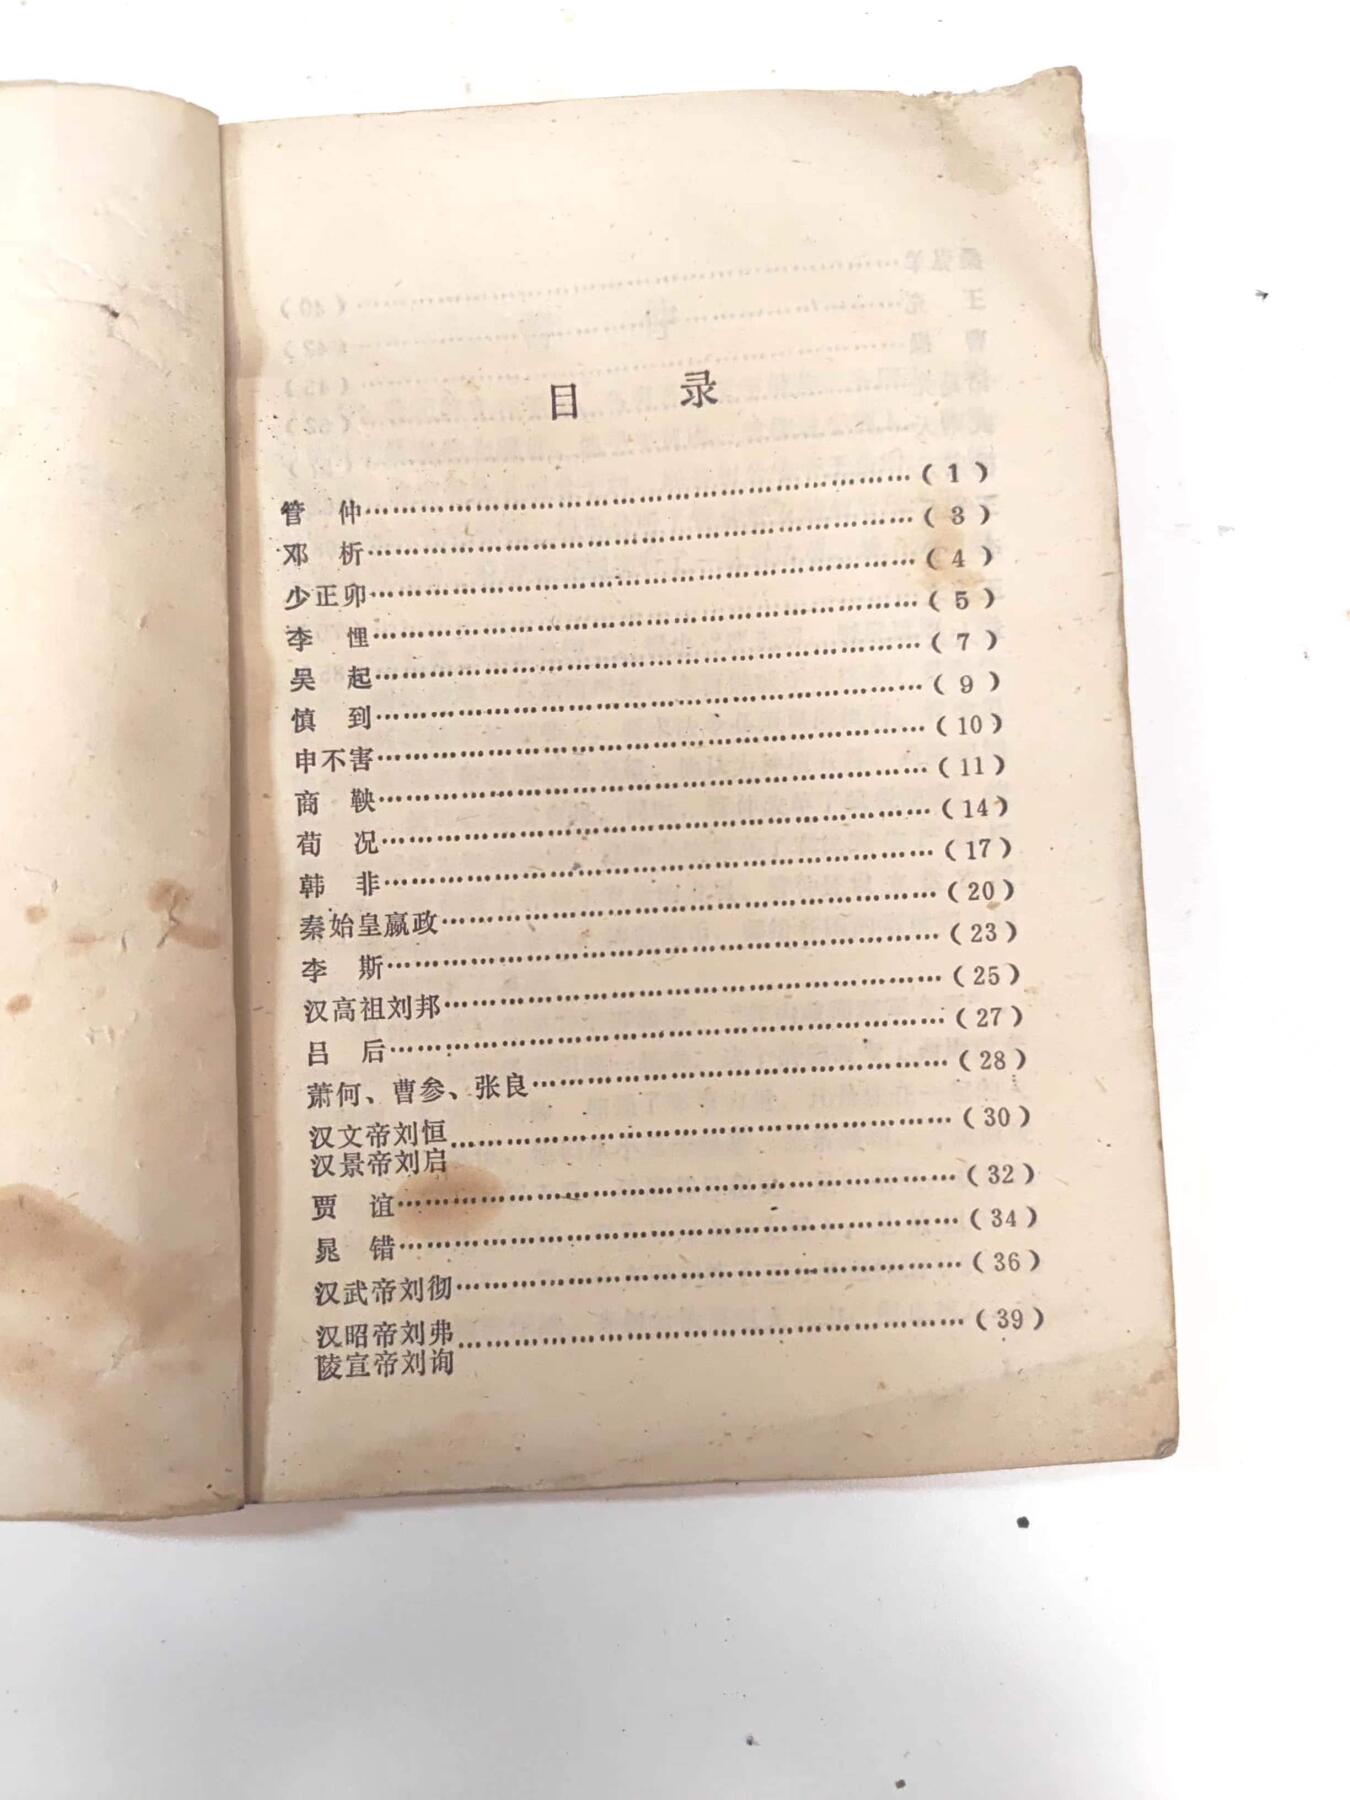 目 录
管 仲……………………………………………………(1)
邓 析……………………………………………………(3)
少正卯……………………………………………………(4)
李 悝……………………………………………………(5)
吴 起……………………………………………………(7)
慎 到……………………………………………………(9)
申不害……………………………………………………(10)
商 鞅……………………………………………………(11)
荀 况……………………………………………………(14)
韩 非……………………………………………………(17)
秦始皇嬴政………………………………………………(20)
李 斯……………………………………………………(23)
汉高祖刘邦………………………………………………(25)
吕 后……………………………………………………(27)
萧何、曹参、张良………………………………………(28)
汉文帝刘恒………………………………………………(30)
汉景帝刘启
贾 谊……………………………………………………(32)
晁 错……………………………………………………(34)
汉武帝刘彻………………………………………………(36)
汉昭帝刘弗………………………………………………(39)
陵宣帝刘询